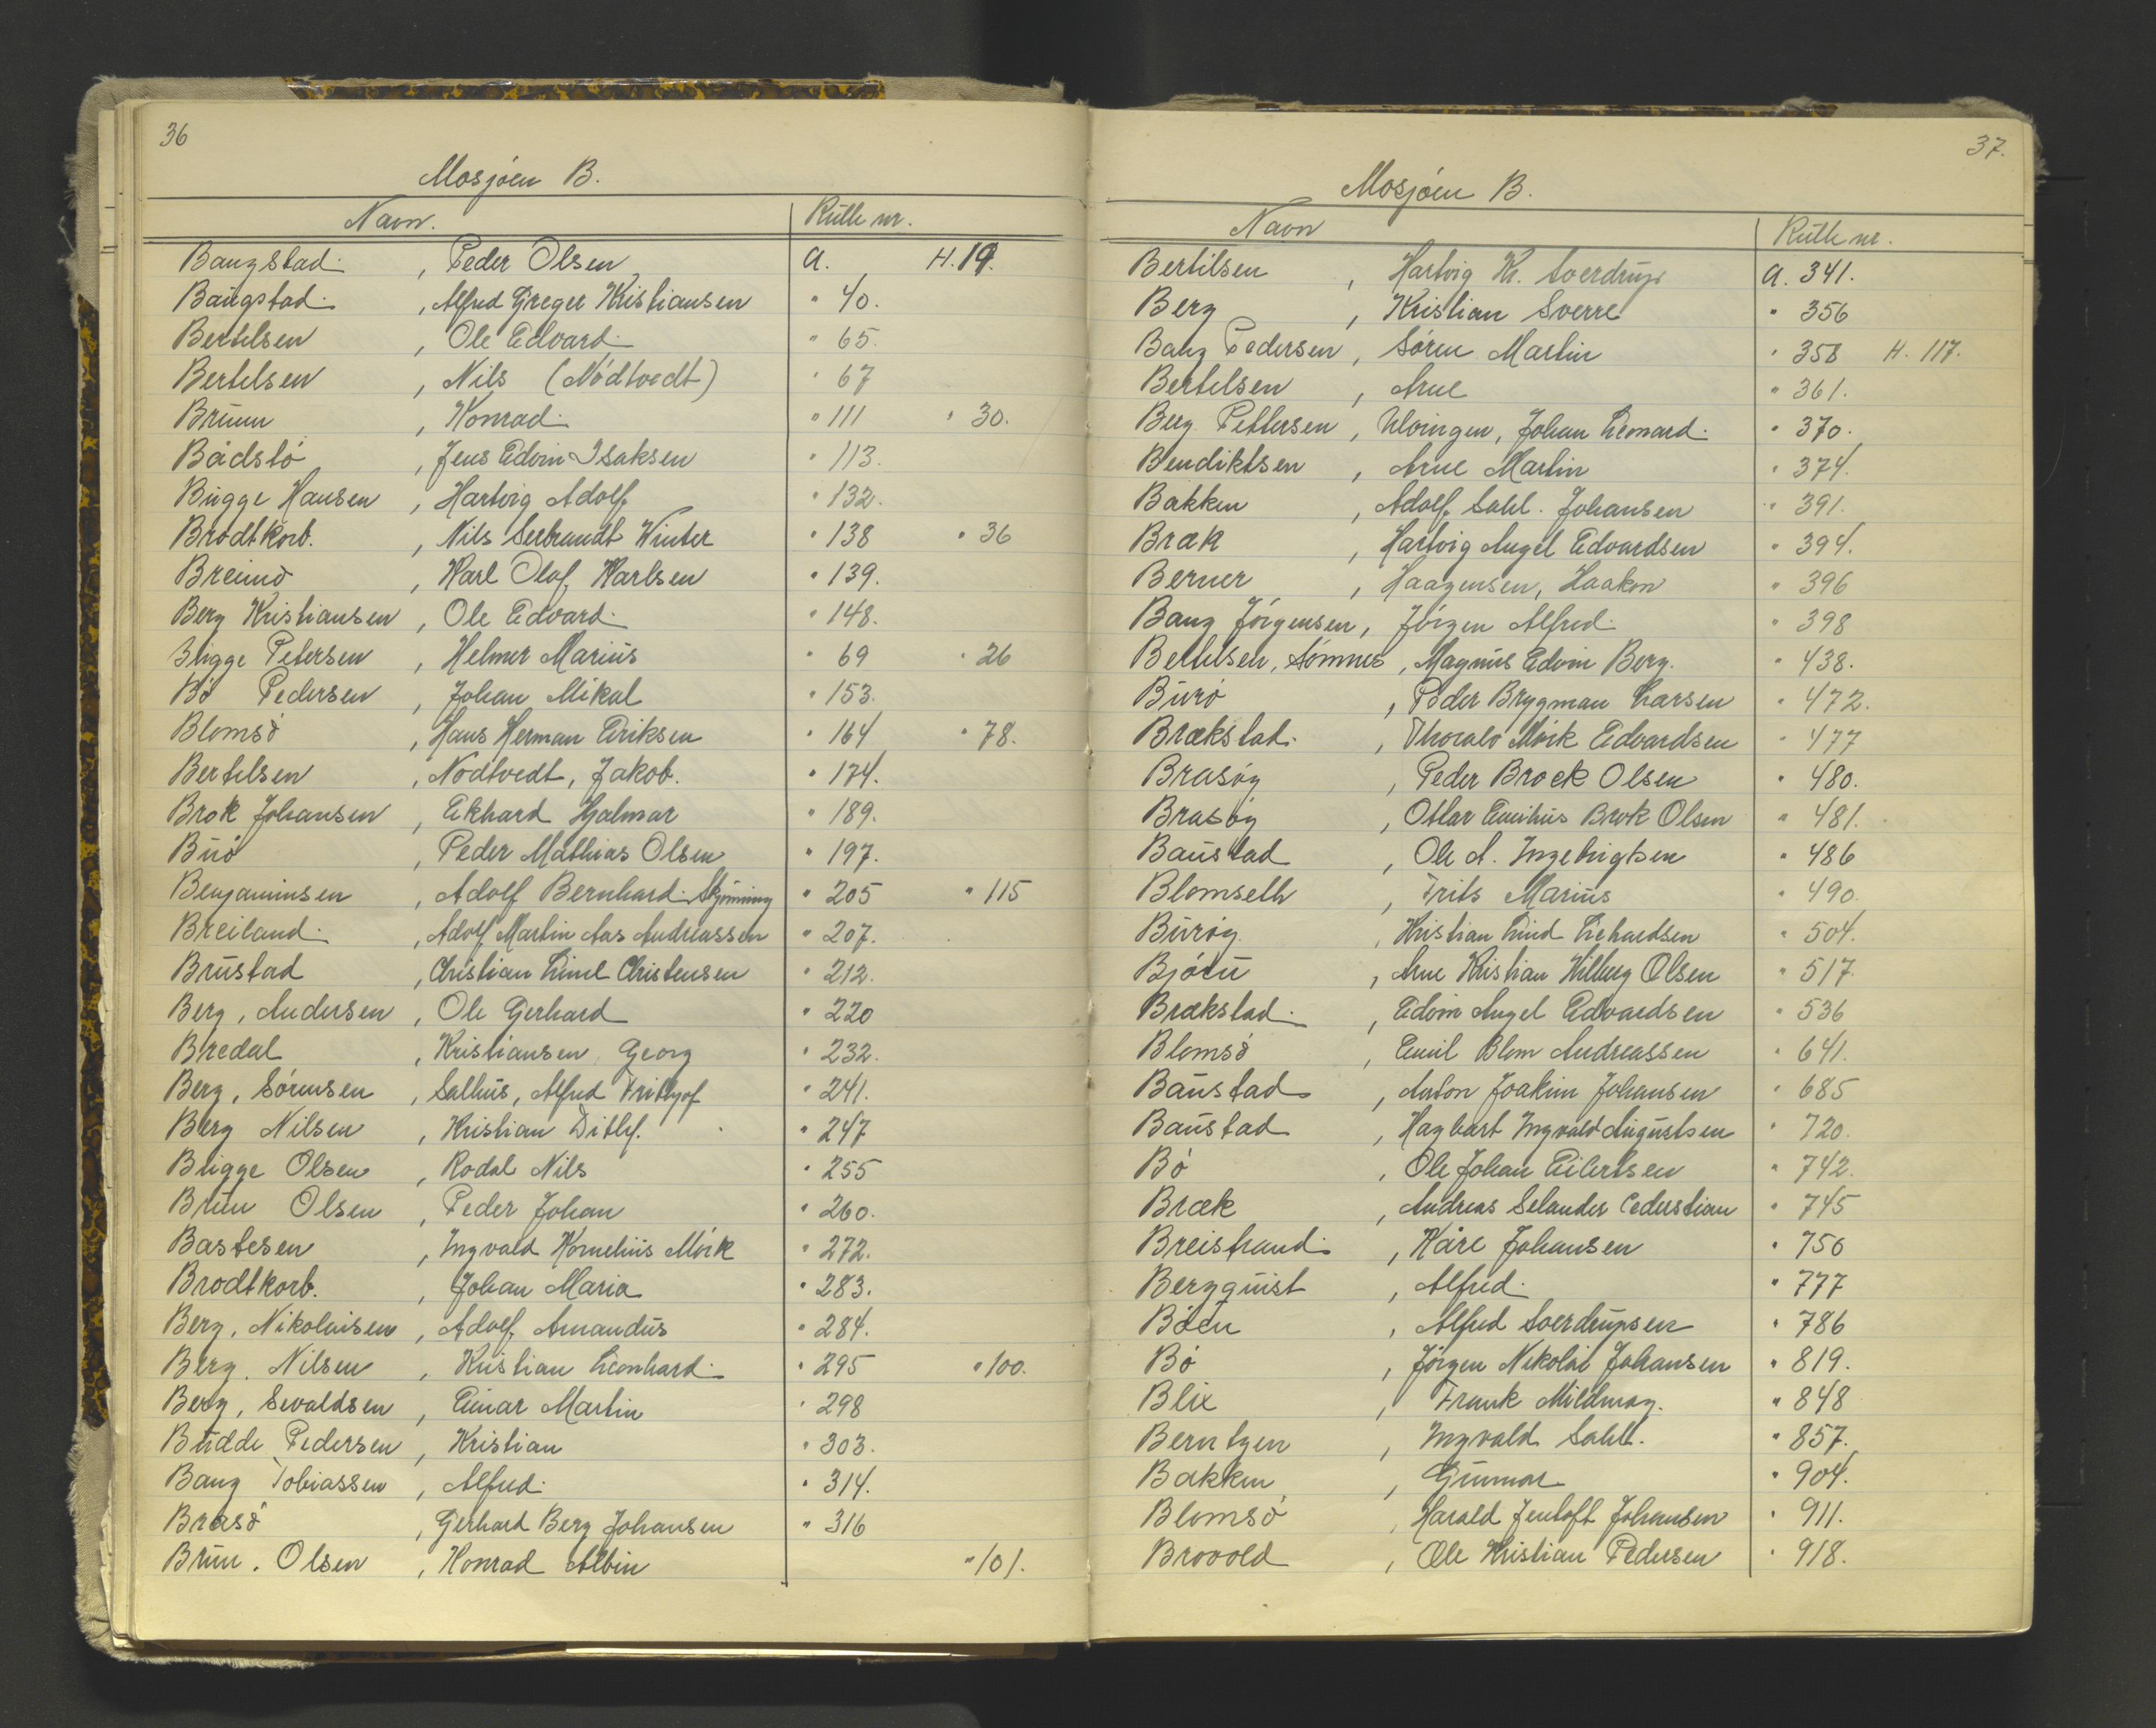 36
Mosjöen B.
Navn. Rulle nr.
Bangstad. , Peder Olsen A. H. 19.
Baugstad. , Alfred Greger Kristiansen " 40.
Bertelsen , Ole Edvard. " 65.
Bertelsen , Nils (Nódtvedt) " 67
Bruun , Konrad. " 111 " 30.
Bådstó , Jens Edvin Isaksen " 113.
Bugge Hansen , Hartvig Adolf " 132.
Brodtkorb. , Nils Serbrandt Winter " 138 " 36
Breimo , Karl Olaf Karlsen " 139.
Berg Kristiansen , Ole Edvard. " 148.
Bugge Petersen , Helmer Marius " 69 " 26
Bó Pedersen , Johan Mikal " 153.
Blomsó , Hans Herman Eriksen " 164 " 78.
Bertelsen , Nodtvedt, Jakob. " 174.
Brok Johansen , Ekhard Hjalmar " 189.
Buó , Peder Mathias Olsen " 197.
Benjaminsen , Adolf Bernhard Skjönning " 205 " 115
Breiland. , Adolf Martin Aas Andreassen " 207.
Brustad , Christian Emil Christensen " 212.
Berg, Andersen , Ole Gerhard " 220
Bredal , Kristiansen, Georg " 232.
Berg, Sórensen , Salhus, Alfred Frithjof " 241.
Berg Nilsen , Kristian Ditlef. " 247
Bugge Olsen , Rodal Nils " 255
Brun Olsen , Peder Johan " 260.
Bastesen , Ingvald Kornelius Mórk " 272.
Brodtkorb. , Johan Maria " 283.
Berg, Nikolaisen , Adolf Amandus " 284.
Berg, Nilsen , Kristian Leonhard. " 295 " 100.
Berg, Sevaldsen , Einar Martin " 298
Budde Pedersen , Kristian " 303.
Bang Tobiassen , Alfred. " 314.
Brasó , Gerhard Berg Johansen " 316
Brun. Olsen , Konrad Albin " 101.
37.
Mosjóen B.
Navn Rulle nr.
Bertilsen , Hartvig Kr. Sverdrup A. 341.
Berg , Kristian Sverre " 356
Bang Pedersen , Sóren Martin " 358 H. 117.
Bertelsen , Arne " 361.
Berg Pettersen , Ulvingen, Johan Leonard. " 370.
Bendiktsen , Arne Martin " 374.
Bakken , Adolf Sahl. Johansen " 391.
Bræk , Hartvig Angel Edvardsen " 394.
Berner , Haagensen, Haakon " 396
Bang Jórgensen , Jórgen Alfred. " 398
Bertelsen, Sómnes , Magnus Edvin Berg. " 438.
Buró , Peder Brygman Larsen " 472.
Brækstad. , Thoralv Mórk Edvardsen " 477
Brasóy , Peder Brock Olsen " 480.
Brasóy , Ottar Emihus Brok Olsen " 481.
Baustad , Ole A. Ingebrigtsen " 486
Blomseth , Frits Marius " 490.
Buróy , Kristian Lind Lichardsen " 504.
Bjóru , Arne Kristian Wilberg Olsen " 517.
Brækstad. , Edvin Angel Edvardsen " 536
Blomsó , Emil Blom Andreassen " 641.
Baustad , Anton Joakim Johansen " 685
Baustad , Hagbart Ingvald Augustsen " 720.
Bó , Ole Johan Eilertsen " 742.
Bræk , Andreas Selander Cederstian " 745
Breistrand. , Kåre Johansen " 750
Bergquist , Alfred. " 777
Bóen , Alfred Sverdrupsen " 786
Bó , Jórgen Nikolai Johansen " 819.
Blix , Frank Mildmay. " 848
Berntzen , Ingvald Sahl. " 857.
Bakken , Gunnar " 904.
Blomsó , Harald Jentoft Johansen " 911.
Brovold , Ole Kristian Pedersen " 918.